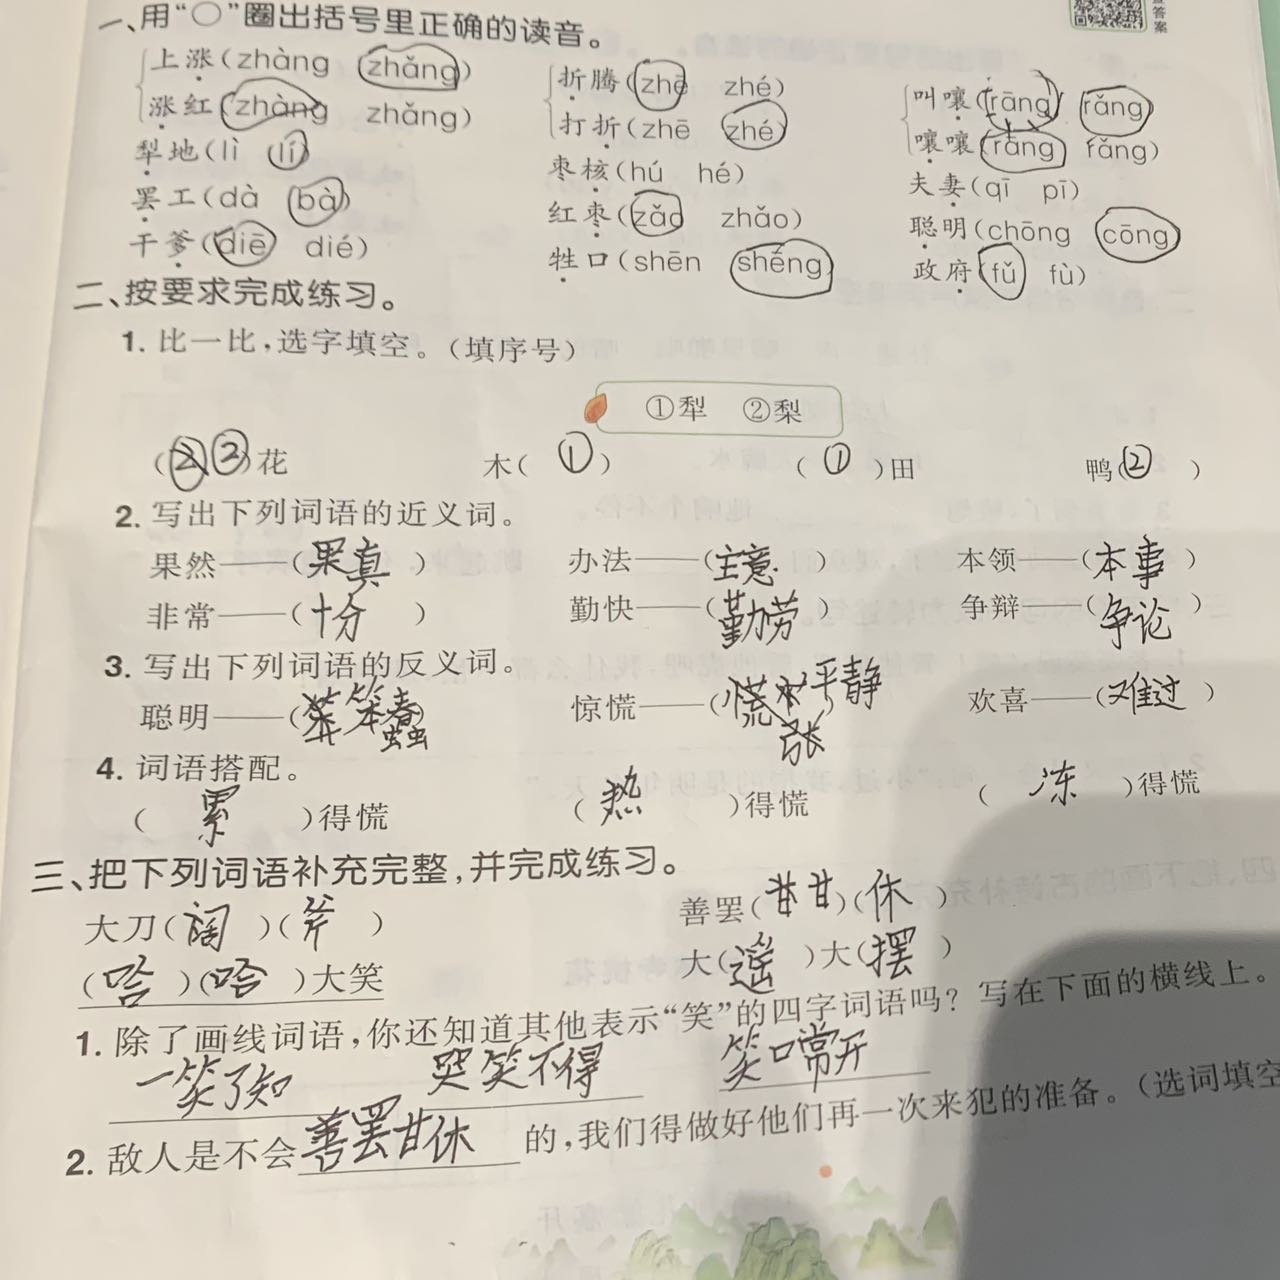 一、用“○”圈出括号里正确的读音。
上涨(zhàng zhǎng) 折腾(zhē zhé) 叫嚷(rāng rǎng)
涨红(zhàng zhǎng) 打折(zhē zhé) 嚷嚷(rāng rǎng)
犁地(lì lí) 枣核(hú hé) 夫妻(qī pī)
罢工(dà bà) 红枣(zǎo zhǎo) 聪明(chōng cōng)
干爹(diē dié) 牲口(shēn shēng) 政府(fǔ fù)
二、按要求完成练习。
1. 比一比,选字填空。(填序号)
①犁 ②梨
(②)花 木(①) (①)田 鸭(②)
2. 写出下列词语的近义词。
果然——(果真) 办法——(主意) 本领——(本事)
非常——(十分) 勤快——(勤劳) 争辩——(争论)
3. 写出下列词语的反义词。
聪明——(笨蠢) 惊慌——(慌张平静) 欢喜——(难过)
4. 词语搭配。
(累)得慌 (热)得慌 (冻)得慌
三、把下列词语补充完整,并完成练习。
大刀(阔)(斧) 善罢(甘)(休)
(哈)(哈)大笑 大(遥)大(摆)
1. 除了画线词语,你还知道其他表示“笑”的四字词语吗?写在下面的横线上。
一笑了知 哭笑不得 笑口常开
2. 敌人是不会善罢甘休的,我们得做好他们再一次来犯的准备。(选词填空
答案